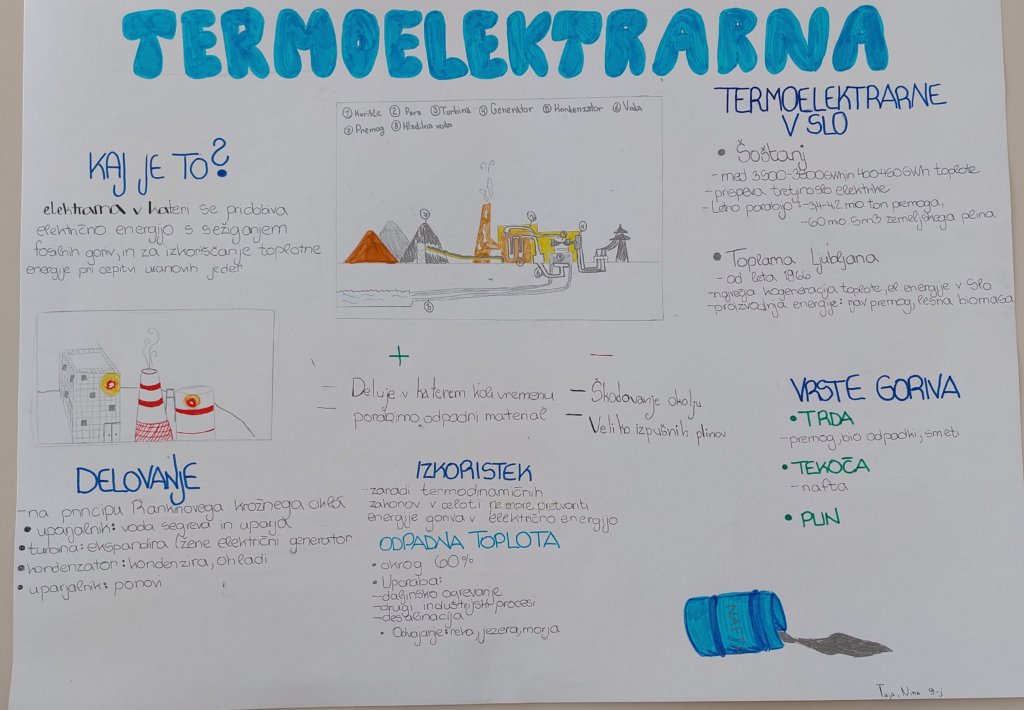 TERMOELEKTRARNA
KAJ JE TO?
elektrarna v kateri se pridobiva
električno energijo s sežiganjem
fosilnih goriv, in za izkoriščanje toplotne
energije pri cepitvi uranovih jeder
① Kurišče ② Para ③ Turbina ④ Generator ⑤ Kondenzator ⑥ Voda
⑦ Premog ⑧ Hladilna voda
TERMOELEKTRARNE
V SLO
• Šoštanj
- med 3500-3800GWh in 400-450 GWh toplote
- prispeva tretjino slo elektrike
- Letno porabijo: -3,4-4,2 mio ton premoga,
-60 mio Sm3 zemeljskega plina
• Toplarna Ljubljana
- od leta 1966
- največja kogeneracija toplote, el energije v Slo
- proizvodnja energije: rjav premog, lesna biomasa
+
Deluje v katerem koli vremenu
porabimo odpadni material
−
- Škodovanje okolju
- Veliko izpušnih plinov
VRSTE GORIVA
• TRDA
- premog, bio odpadki, smeti
• TEKOČA
- nafta
• PLIN
DELOVANJE
- na principu Rankinovega krožnega cikla
• uparjalnik: voda segreva in uparja
• turbina: ekspandira (žene električni generator
• kondenzator: kondenzira, ohladi
• uparjalnik: ponovi
IZKORISTEK
- zaradi termodinamičnih
zakonov v celoti ne more pretvoriti
energije goriva v električno energijo
ODPADNA TOPLOTA
• okrog 60%
• Uporaba:
- daljinsko ogrevanje
- drugi industrijski procesi
- desalinacija
• Odvajanje: reka, jezera, morja
NAFTA
Taja, Nina 9.j